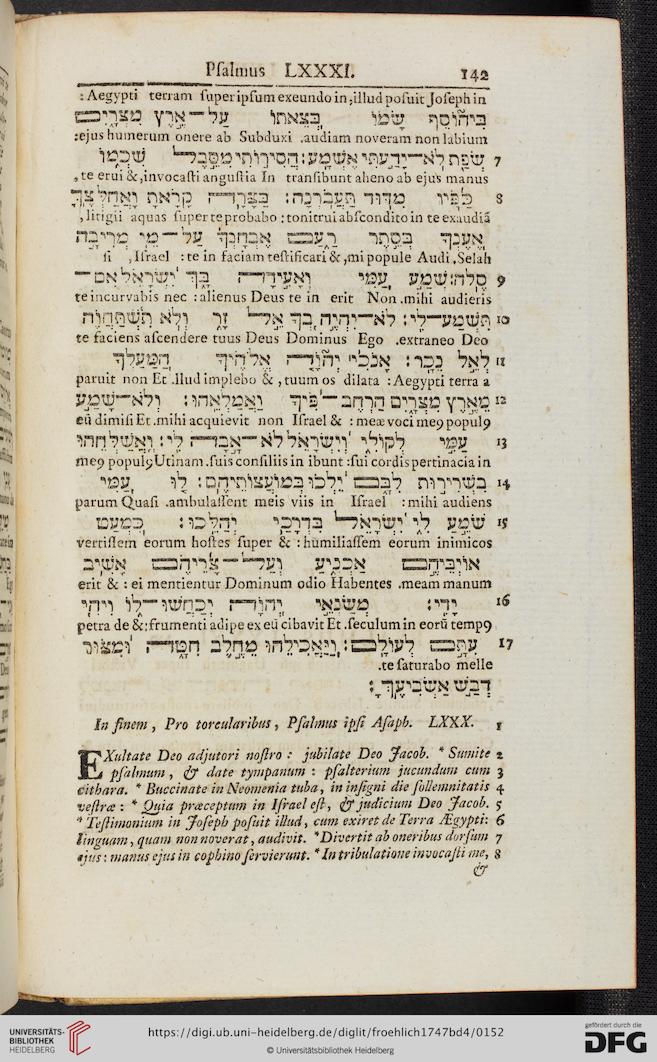 Psalmus LXXXI. 142
: Aegypti terram super ipsum exeundo in, illud posuit Joseph in
בִּיהוֹסֵף שָׂמוֹ בְּצֵאתוֹ עַל־אֶרֶץ מִצְרָיִם
:ejus humerum onere ab Subduxi .audiam noveram non labium
שְׂפַת לֹא־יָדַעְתִּי אֶשְׁמָע: הֲסִירוֹתִי מִסֵּבֶל שִׁכְמוֹ 7
, te erui &, invocasti angustia In transibunt aheno ab ejus manus
כַּפָּיו מִדּוּד תַּעֲבֹרְנָה: בַּצָּרָה קָרָאתָ וָאֲחַלְּצֶךָּ 8
, litigii aquas super te probabo : tonitrui abscondito in te exaudiã
אֶעֶנְךָ בְּסֵתֶר רַעַם אֶבְחָנְךָ עַל־מֵי מְרִיבָה
si , Israel : te in faciam testificari &, mi popule Audi .Selah
סֶלָה: שְׁמַע עַמִּי וְאָעִידָה בָּךְ יִשְׂרָאֵל אִם־ 9
te incurvabis nec : alienus Deus te in erit Non .mihi audieris
תִּשְׁמַע־לִי: לֹא־יִהְיֶה בְךָ אֵל זָר וְלֹא תִשְׁתַּחֲוֶה 10
te faciens ascendere tuus Deus Dominus Ego .extraneo Deo
לְאֵל נֵכָר: אָנֹכִי יְהוָֹה אֱלֹהֶיךָ הַמַּעַלְךָ 11
paruit non Et .illud implebo &, tuum os dilata : Aegypti terra a
מֵאֶרֶץ מִצְרָיִם הַרְחֶב־פִּיךָ וַאֲמַלְאֵהוּ: וְלֹא־שָׁמַע 12
eũ dimisi Et .mihi acquievit non Israel & : meæ voci meꝰ populꝰ
עַמִּי לְקוֹלִי וְיִשְׂרָאֵל לֹא־אָבָה לִי: וָאֲשַׁלְּחֵהוּ 13
meꝰ populꝰ Utinam .suis consiliis in ibunt :sui cordis pertinacia in
בִּשְׁרִירוּת לִבָּם יֵלְכוּ בְּמוֹעֲצוֹתֵיהֶם: לוּ עַמִּי 14
parum Quasi .ambulassent meis viis in Israel : mihi audiens
שֹׁמֵעַ לִי יִשְׂרָאֵל בִּדְרָכַי יְהַלֵּכוּ: כִּמְעַט 15
vertissem eorum hostes super & : humiliassem eorum inimicos
אוֹיְבֵיהֶם אַכְנִיעַ וְעַל־צָרֵיהֶם אָשִׁיב
erit & : ei mentientur Dominum odio Habentes .meam manum
יָדִי: מְשַׂנְאֵי יְהוָֹה יְכַחֲשׁוּ־לוֹ וִיהִי 16
petra de &; frumenti adipe ex eũ cibavit Et .seculum in eorũ tempꝰ
עִתָּם לְעוֹלָם: וַיַּאֲכִילֵהוּ מֵחֵלֶב חִטָּה וּמִצּוּר 17
.te saturabo melle
דְּבַשׁ אַשְׂבִּיעֶךָ:
In finem, Pro torcularibus, Psalmus ipsi Asaph. LXXX. 1
EXultate Deo adjutori nostro : jubilate Deo Jacob. * Sumite 2
psalmum, & date tympanum : psalterium jucundum cum 3
cithara. * Buccinate in Neomenia tuba, in insigni die sollemnitatis 4
vestræ : * Quia præceptum in Israel est, & judicium Deo Jacob. 5
* Testimonium in Joseph posuit illud, cum exiret de Terra Ægypti: 6
linguam, quam non noverat, audivit. * Divertit ab oneribus dorsum 7
ejus : manus ejus in cophino servierunt. * In tribulatione invocasti me, 8
&
UNIVERSITÄTS-
BIBLIOTHEK
HEIDELBERG
https://digi.ub.uni-heidelberg.de/diglit/froehlich1747bd4/0152
© Universitätsbibliothek Heidelberg
gefördert durch die
DFG